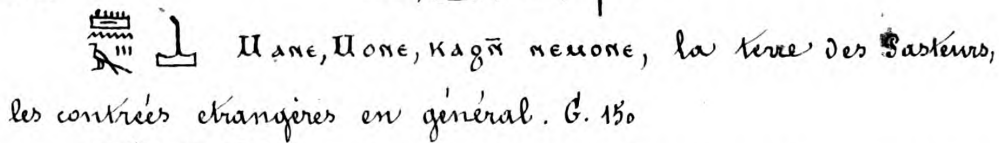 Ⲙⲁⲛⲉ, Ⲙⲟⲛⲉ, ⲕⲁϩⲛ̄ ⲛⲉⲙⲟⲛⲉ, la terre des Pasteurs,
les contrées etrangères en général. G. 150